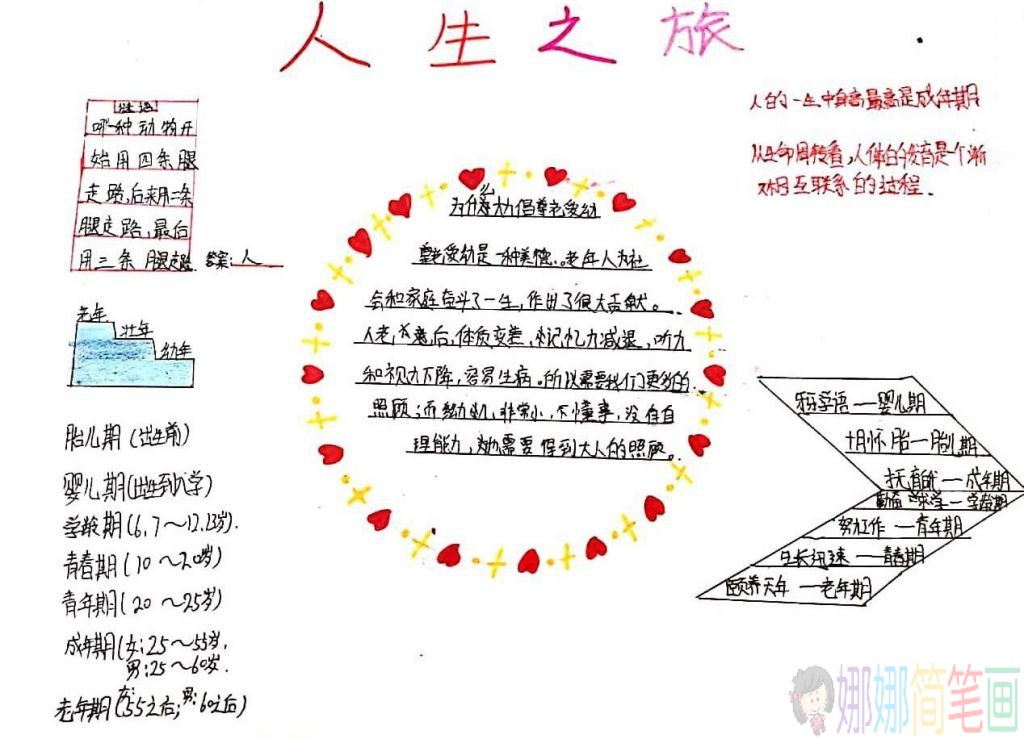 人生之旅
谜语
哪一种动物开
始用四条腿
走路,后来用二条
腿走路,最后
用三条腿走路.
答案:人
老年
壮年
幼年
胎儿期(出生前)
婴儿期(出生到入学)
学龄期(6,7～12,13岁).
青春期(10～20岁)
青年期(20～25岁)
成年期(女:25～55岁.
男:25～60岁.
老年期(女:55之后;男:60之后)
为什么大力倡尊老爱幼
尊老爱幼是一种美德.。老年人为社
会和家庭奋斗了一生,作出了很大贡献。
人老,以后,体质变差,记忆力减退,听力
和视力下降,容易生病。所以需要我们更多的
照顾;而幼儿,非常小,不懂事,没有自
理能力,她需要得到大人的照顾。
人的一生中身高最高是成年期
从生命周转看,人体的发育是个渐
次相互联系的过程.
牙牙学语—婴儿期
十月怀胎—胎儿期
抚育—成年期
勤奋求学—学龄期
努力工作—青年期
生长迅速—青春期
颐养天年—老年期
娜娜简笔画